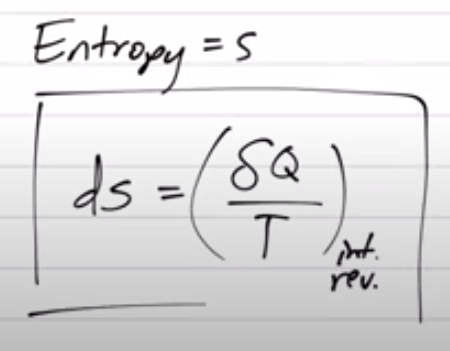 Entropy = s
ds = (δQ/T) int. rev.